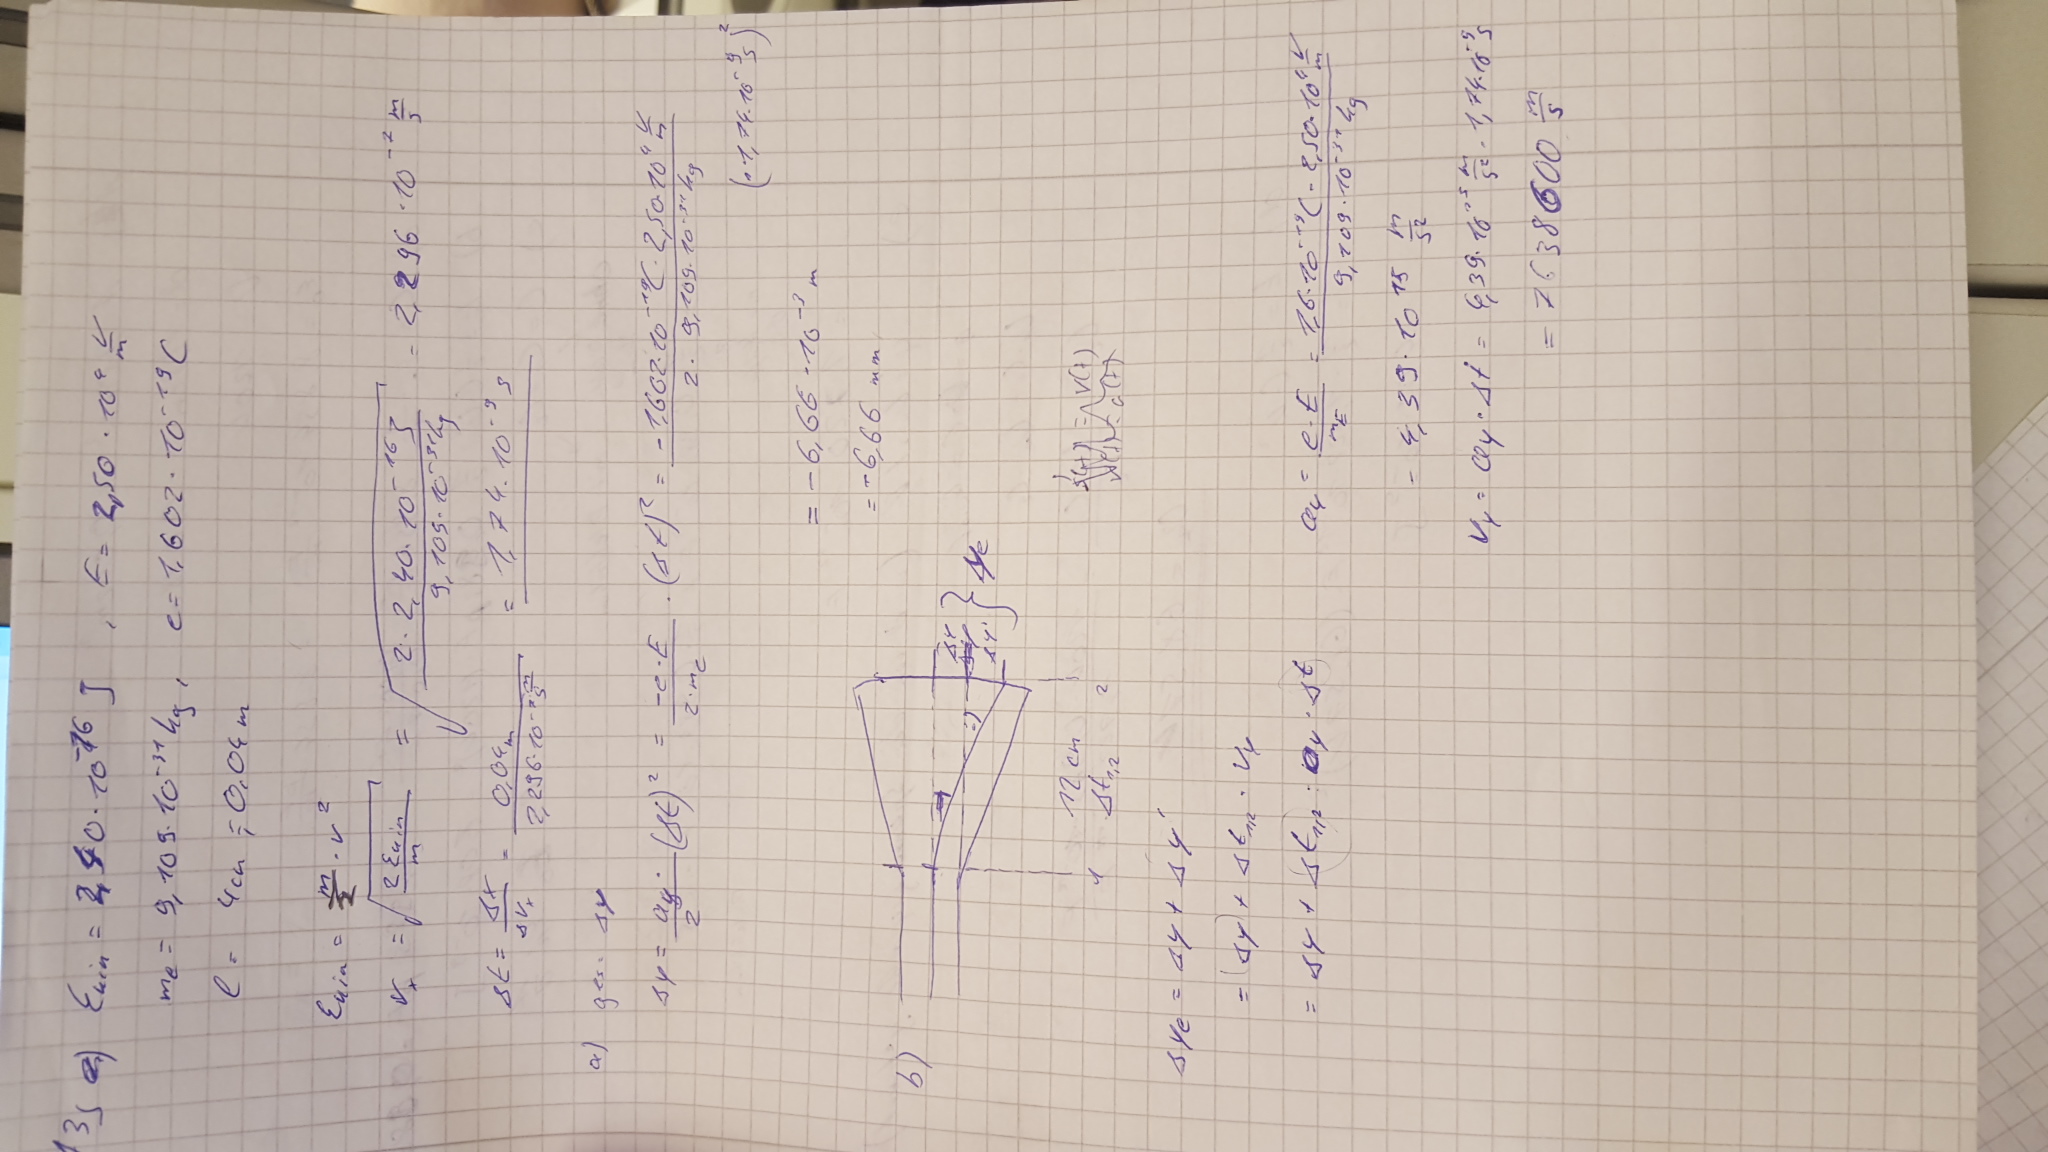 A3, a) Ekin = 2,40·10^-16 J , E = 2,50·10^4 V/m
me = 9,109·10^-31 kg, e = 1,602·10^-19 C
l = 4cm = 0,04 m
Ekin = m/2 · v^2
vx = √(2Ekin/m) = √(2·2,40·10^-16 J / 9,109·10^-31 kg) = 2,296·10^-7 m/s
Δt = Δx/Δvx = 0,04m / 2,296·10^-7 m/s = 1,74·10^-9 s
a) ges: Δy
Δy = ay/2 · (Δt)^2 = -e·E / 2·me · (Δt)^2 = -1,602·10^-19 C · 2,50·10^4 V/m / 2 · 9,109·10^-31 kg
(·1,74·10^-9 s)^2
= -6,66·10^-3 m
= -6,66 mm
b)
Δy
Δy'
} Δye
12 cm
1 Δt1,2 2
Δye = Δy + Δy'
= (Δy) + Δt1,2 · vy
= Δy + Δt1,2 · ay · Δt
ay = e·E / mE = 1,6·10^-19 C · 2,50·10^4 V/m / 9,109·10^-31 kg
= 4,39·10^15 m/s^2
vy = ay · Δt = 4,39·10^15 m/s^2 · 1,74·10^-9 s
= 7638600 m/s